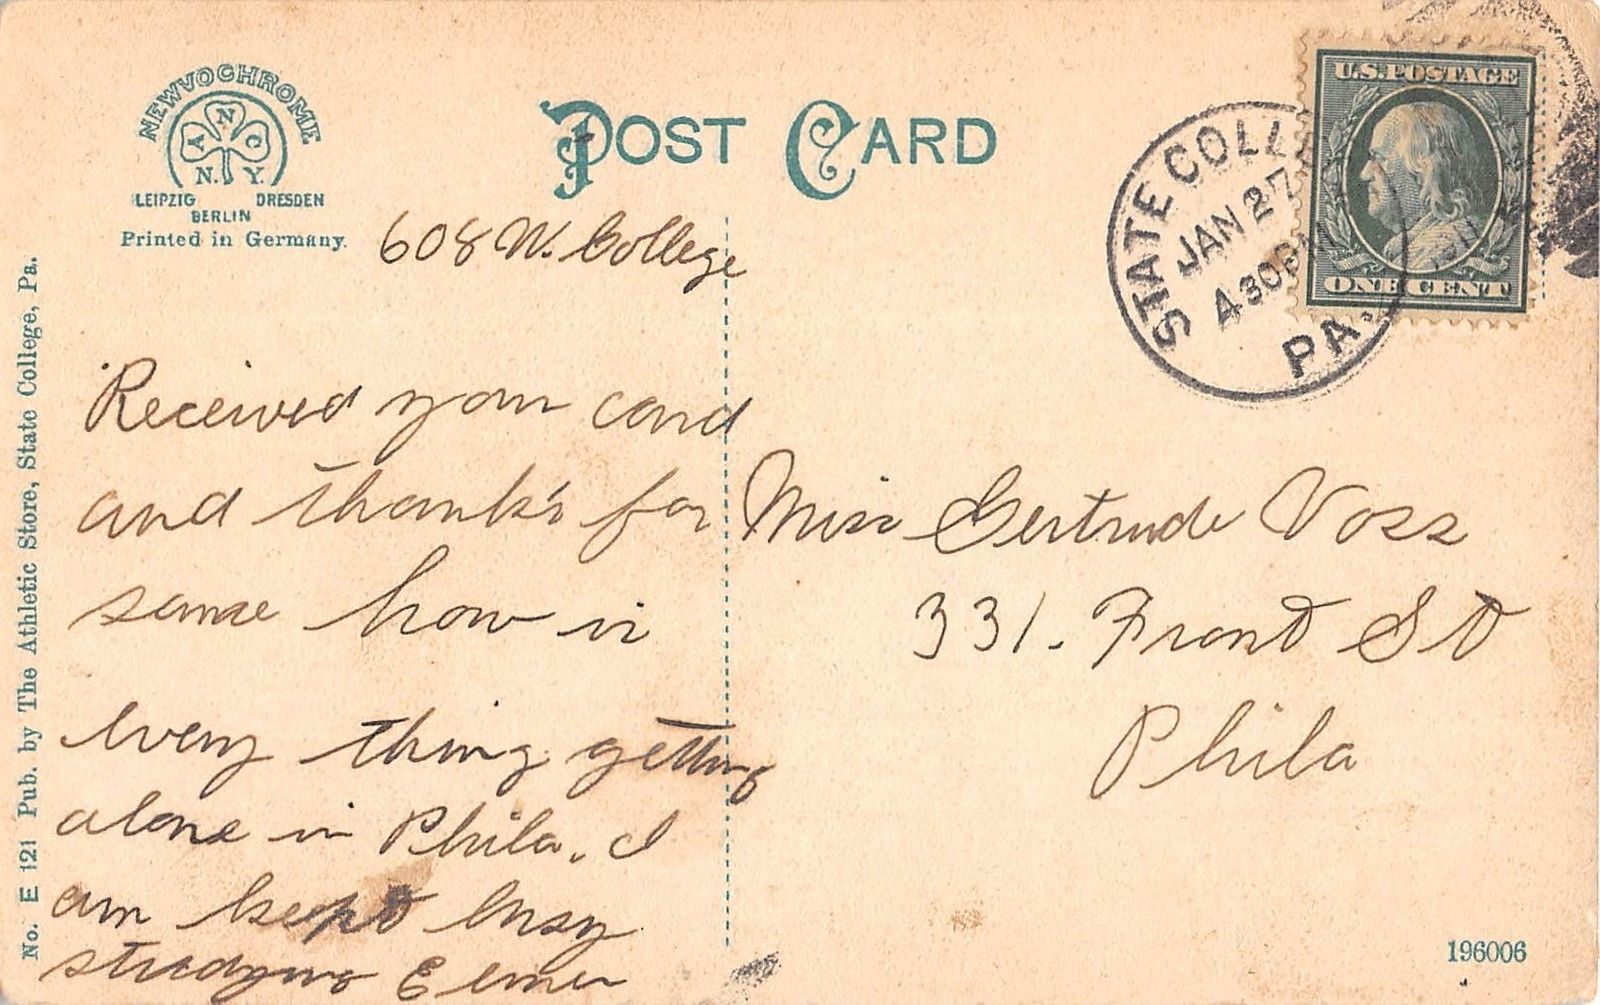 NEWVOCHROME
A N C
N. Y.
LEIPZIG DRESDEN
BERLIN
Printed in Germany.
POST CARD
U.S. POSTAGE
ONE CENT
STATE COLLE
JAN 27
4 30 PM
PA.
608 W. College
Received your card
and thank's for
same how is
every thing getting
alone in Phila. I
am kept busy
studying Elmer
Miss Gertrude Voss
331. Front St
Phila
No. E 121 Pub. by The Athletic Store, State College, Pa.
196006